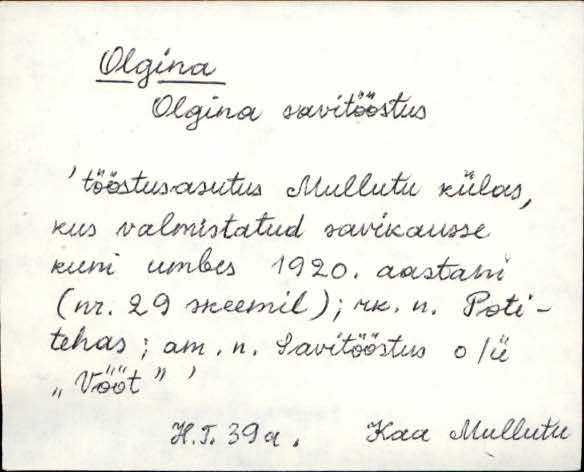 Olgina
Olgina savitööstus
'tööstusasutus Mullutu külas,
kus valmistatud savikausse
kuni umbes 1920. aastani
(nr. 29 skeemil); rk. n. Poti-
tehas; am. n. Savitööstus o/ü
„Vööt" '
H.T. 39 a. Kaa Mullutu